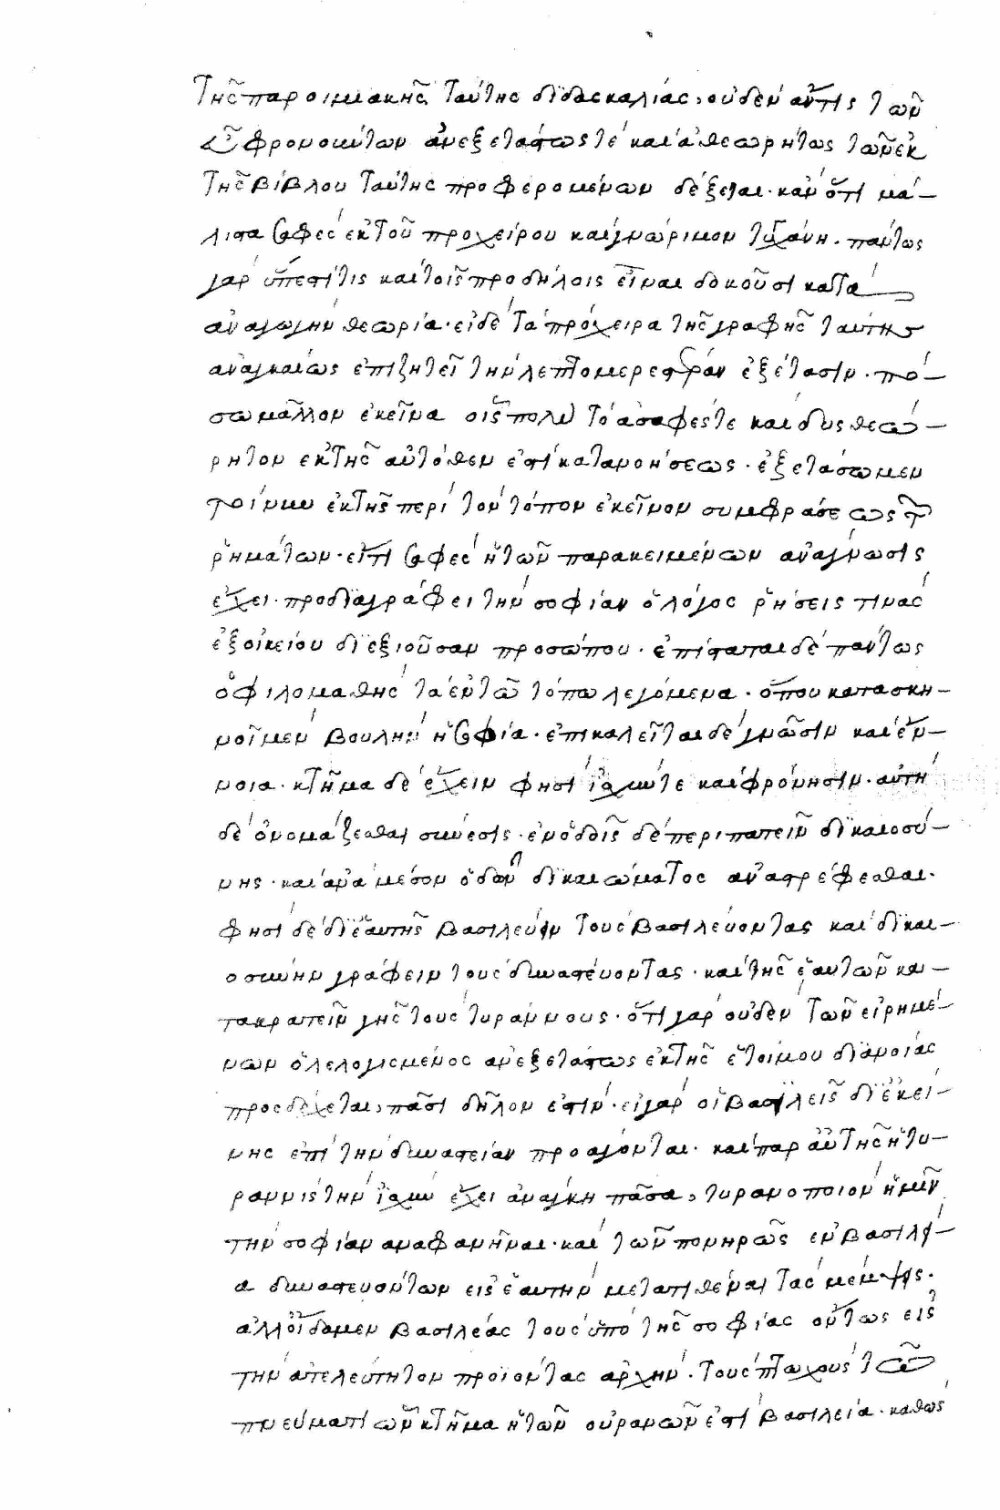 τῆς παροιμιακῆς ταύτης διδασκαλίας, οὐδὲν αὔτις τῶν
εὖ φρονούντων ἀνεξετάστως τὲ καὶ ἀθεωρήτως τῶν ἐκ
τῆς βίβλου ταύτης προφερομένων δέξεται. κἂν ὅτι μά-
λιστα σαφὲς ἐκ τοῦ προχείρου καὶ γνώριμον τυγχάνῃ. πάντως
γάρ ὕπεστί τις καὶ τοῖς προδήλοις εἶναι δοκοῦσι κατὰ
ἀναγωγὴν θεωρία. εἰ δὲ τὰ πρόχειρα τῆς γραφῆς ταύτης
ἀναγκαίως ἐπιζητεῖ τὴν λεπτομερεστέραν ἐξέτασιν. πό-
σω μᾶλλον ἐκεῖνα οἷς πολὺ τὸ ἀσαφές τε καὶ δυσθεώ-
ρητον ἐκ τῆς αὐτόθεν ἐστὶ κατανοήσεως. ἐξετάσωμεν
τοίνυν ἐκ τῆς περὶ τὸν τόπον ἐκεῖνον συμφράσεως τῶν
ῥημάτων. εἴ τι σαφὲς ἡ τῶν παρακειμένων ἀνάγνωσις
ἔχει. προδιαγράφει τὴν σοφίαν ὁ λόγος ῥήσεις τινὰς
ἐξ οἰκείου διεξιοῦσαν προσώπου. ἐπίσταται δὲ πάντως
ὁ φιλομαθὴς τὰ ἐν τῶ τόπω λεγόμενα. ὅπου κατασκη-
νοῖ μὲν βουλὴν ἡ σοφία. ἐπικαλεῖται δὲ γνῶσιν καὶ ἔν-
νοια. κτῆμα δὲ ἔχειν φησὶ ἰσχύν τε καὶ φρόνησιν. αὐτὴ
δὲ ὀνομάζεσθαι σύνεσις. ἐν ὁδοῖς δὲ περιπατεῖν δικαιοσύ-
νης. καὶ ἀνὰ μέσον ὁδῶν δικαιώματος ἀναστρέφεσθαι.
φησὶ δὲ δι' ἑαυτῆς βασιλεύειν τοὺς βασιλεύοντας καὶ δικαι-
οσύνην γράφειν τοὺς δυναστεύοντας. καὶ τῆς ἑαυτῶν κα-
τακρατεῖν γῆς τοὺς τυράννους. ὅτι γάρ οὐδὲν τῶν εἰρημέ-
νων ὁ λελογισμένος ἀνεξετάστως ἐκ τῆς ἑτοίμου διανοίας
προσδέχεται, πᾶσι δῆλον ἐστίν. εἰ γάρ οἱ βασιλεῖς δι' ἐκεί-
νης ἐπὶ τὴν δυναστείαν προάγονται. καὶ παρ αὐτῆς ἡ τυ-
ραννὶς τὴν ἰσχὺν ἔχει ἀνάγκη πᾶσα, τυρανοποιὸν ἡμῖν
τὴν σοφίαν ἀναφανῆναι. καὶ τῶν πονηρῶς ἐν βασιλεί-
α δυναστευόντων εἰς ἑαυτὴν μετατιθέναι τὰς μέμψεις.
ἀλλ' οἴδαμεν βασιλέας τοὺς ὑπὸ τῆς σοφίας ὄντως εἰς
τὴν ἀτελεύτητον προϊόντας ἀρχήν. τοὺς πτωχοὺς τῶ
πνεύματι ὧν κτῆμα ἡ τῶν οὐρανῶν ἐστὶ βασιλεία. καθὼς